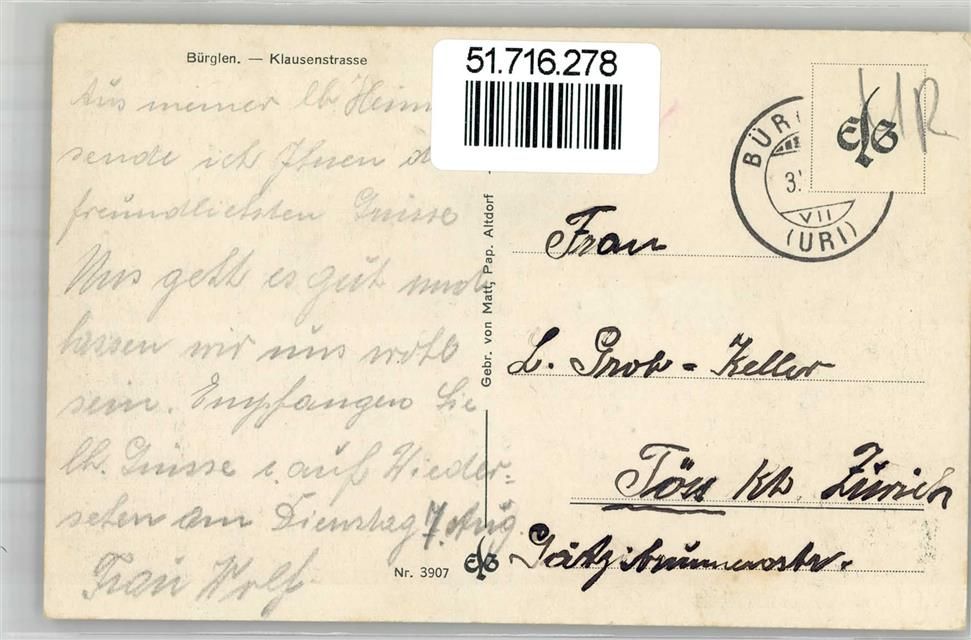 Bürglen. — Klausenstrasse
51.716.278
Aus meiner lb. Heim
sende ich Ihnen d
freundlichsten Grüsse
Uns geht es gut und
lassen wir uns wohl
sein. Empfangen Sie
lb. Grüsse u. auf Wieder-
sehen am Dienstag 7. Aug
Frau Wolf
Gebr. von Matt, Pap. Altdorf
Nr. 3907
BÜR
3.
VII
(URI)
Frau
L. Grob - Keller
Töss Kt. Zürich